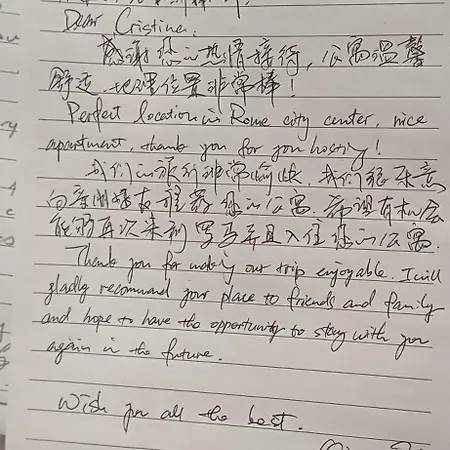 Dear Cristina,
感谢您的热情接待，公寓温馨
舒适、地理位置非常棒！
Perfect location in Rome city center, nice
apartment, thank you for you hosting!
我们的旅行非常愉快，我们很乐意
向亲朋好友推荐您的公寓，希望有机会
能够再次来到罗马并且入住您的公寓.
Thank you for making our trip enjoyable. I will
gladly recommend your place to friends and family
and hope to have the opportunity to stay with you
again in the future.
Wish you all the best.